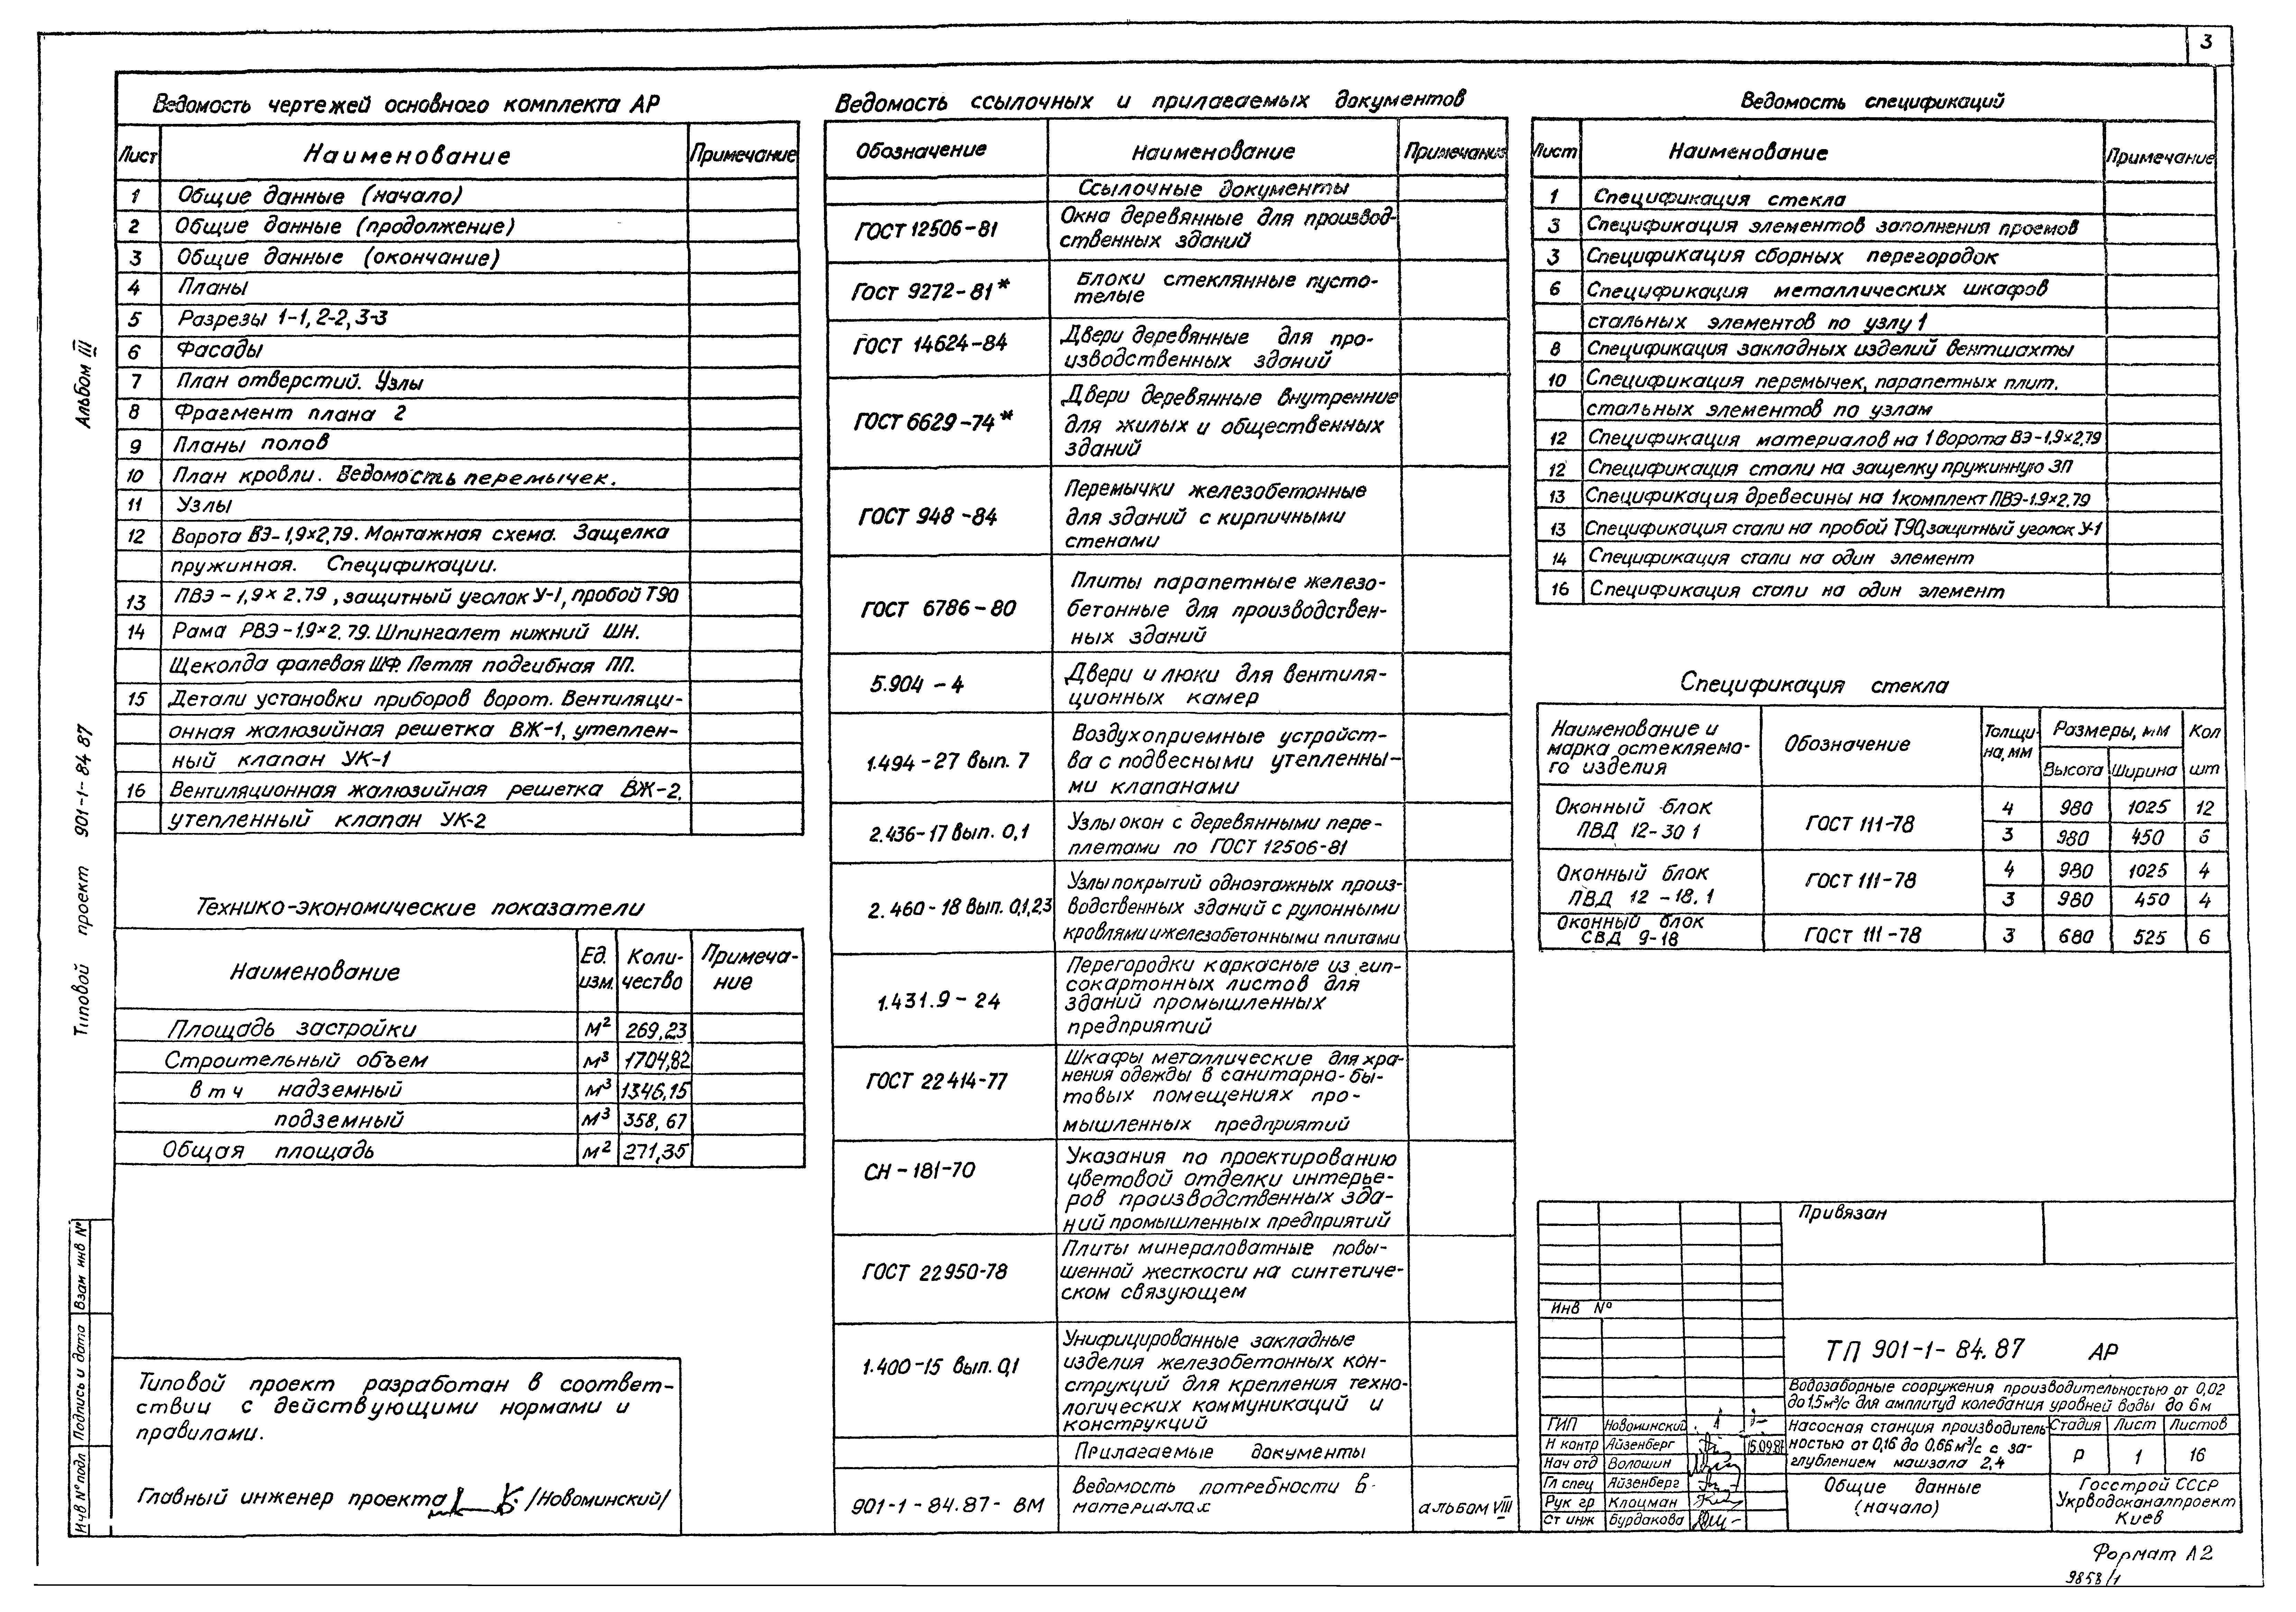 3
Ведомость чертежей основного комплекта АР
Лист Наименование Примечание
1 Общие данные (начало)
2 Общие данные (продолжение)
3 Общие данные (окончание)
4 Планы
5 Разрезы 1-1, 2-2, 3-3
6 Фасады
7 План отверстий. Узлы
8 Фрагмент плана 2
9 Планы полов
10 План кровли. Ведомость перемычек.
11 Узлы
12 Ворота ВЭ-1,9×2,79. Монтажная схема. Защелка
пружинная. Спецификации.
13 ПВЭ-1,9×2.79, защитный уголок У-1, пробой Т90
14 Рама РВЭ-1.9×2.79. Шпингалет нижний ШН.
Щеколда фалевая ШФ. Петля подгибная ПП.
15 Детали установки приборов ворот. Вентиляци-
онная жалюзийная решетка ВЖ-1, утеплен-
ный клапан УК-1
16 Вентиляционная жалюзийная решетка ВЖ-2,
утепленный клапан УК-2
Технико-экономические показатели
Наименование Ед. изм. Коли-чество Примеча-ние
Площадь застройки м² 269,23
Строительный объем м³ 1704,82
в т ч надземный м³ 1346,15
подземный м³ 358,67
Общая площадь м² 271,35
Типовой проект разработан в соответ-
ствии с действующими нормами и
правилами.
Главный инженер проекта /Новоминский/
Ведомость ссылочных и прилагаемых документов
Обозначение Наименование Примечание
Ссылочные документы
ГОСТ 12506-81 Окна деревянные для производ-
ственных зданий
ГОСТ 9272-81* Блоки стеклянные пусто-
телые
ГОСТ 14624-84 Двери деревянные для про-
изводственных зданий
ГОСТ 6629-74* Двери деревянные внутренние
для жилых и общественных
зданий
ГОСТ 948-84 Перемычки железобетонные
для зданий с кирпичными
стенами
ГОСТ 6786-80 Плиты парапетные железо-
бетонные для производствен-
ных зданий
5.904-4 Двери и люки для вентиля-
ционных камер
1.494-27 вып. 7 Воздухоприемные устройст-
ва с подвесными утепленны-
ми клапанами
2.436-17 вып. 0,1 Узлы окон с деревянными пере-
плетами по ГОСТ 12506-81
2.460-18 вып. 0,1,2,3 Узлы покрытий одноэтажных произ-
водственных зданий с рулонными
кровлями и железобетонными плитами
1.431.9-24 Перегородки каркасные из гип-
сокартонных листов для
зданий промышленных
предприятий
ГОСТ 22414-77 Шкафы металлические для хра-
нения одежды в санитарно-бы-
товых помещениях про-
мышленных предприятий
СН-181-70 Указания по проектированию
цветовой отделки интерье-
ров производственных зда-
ний промышленных предприятий
ГОСТ 22950-78 Плиты минераловатные повы-
шенной жесткости на синтетиче-
ском связующем
1.400-15 вып. 0,1 Унифицированные закладные
изделия железобетонных кон-
струкций для крепления техно-
логических коммуникаций и
конструкций
Прилагаемые документы
901-1-84.87-ВМ Ведомость потребности в
материалах альбом VIII
Ведомость спецификаций
Лист Наименование Примечание
1 Спецификация стекла
3 Спецификация элементов заполнения проемов
3 Спецификация сборных перегородок
6 Спецификация металлических шкафов
стальных элементов по узлу 1
8 Спецификация закладных изделий вентшахты
10 Спецификация перемычек, парапетных плит.
стальных элементов по узлам
12 Спецификация материалов на 1 ворота ВЭ-1,9×2,79
12 Спецификация стали на защелку пружинную ЗП
13 Спецификация древесины на 1 комплект ПВЭ-1.9×2.79
13 Спецификация стали на пробой Т90, защитный уголок У-1
14 Спецификация стали на один элемент
16 Спецификация стали на один элемент
Спецификация стекла
Наименование и марка остекляемо-го изделия Обозначение Толщи-на, мм Размеры, мм Кол шт
Высота Ширина
Оконный блок ПВД 12-30 1 ГОСТ 111-78 4 980 1025 12
3 980 450 6
Оконный блок ПВД 12-18.1 ГОСТ 111-78 4 980 1025 4
3 980 450 4
Оконный блок СВД 9-18 ГОСТ 111-78 3 680 525 6
Привязан
Инв №
ТП 901-1-84.87 АР
Водозаборные сооружения производительностью от 0,02
до 1,5 м³/с для амплитуд колебания уровней воды до 6 м
ГИП Новоминский
Н контр Айзенберг 15.09.87
Нач отд Волошин
Гл спец Айзенберг
Рук гр Клоцман
Ст инж Бурдакова
Насосная станция производитель-
ностью от 0,16 до 0,66 м³/с с за-
глублением машзала 2,4
Стадия Лист Листов
Р 1 16
Общие данные
(начало)
Госстрой СССР
Укрводоканалпроект
Киев
Формат А2
9858/1
Альбом III
Типовой проект 901-1-84 87
Взам инв №
Подпись и дата
Инв № подл